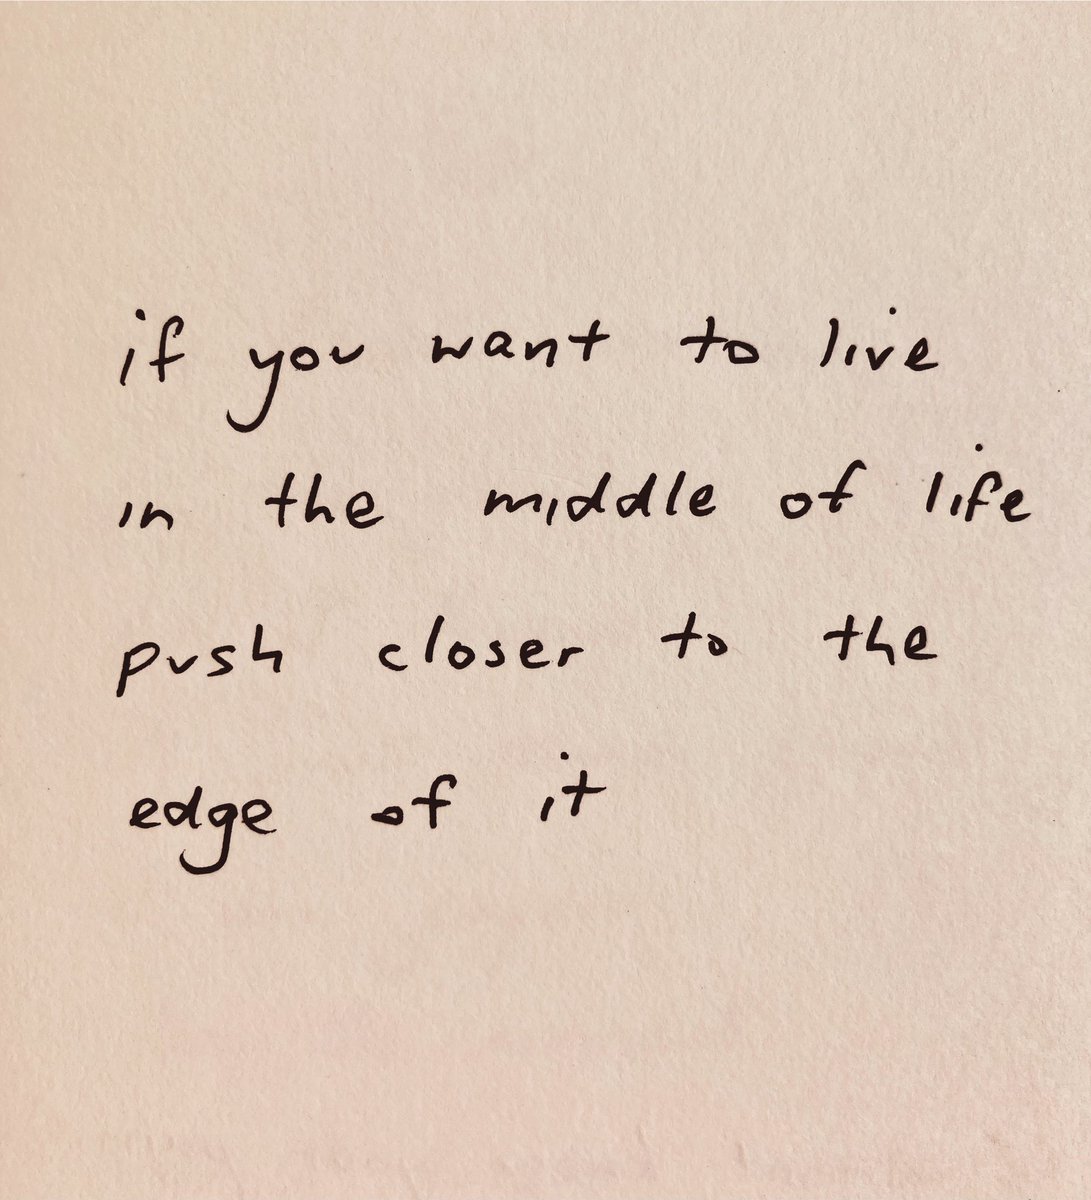 if you want to live
in the middle of life
push closer to the
edge of it